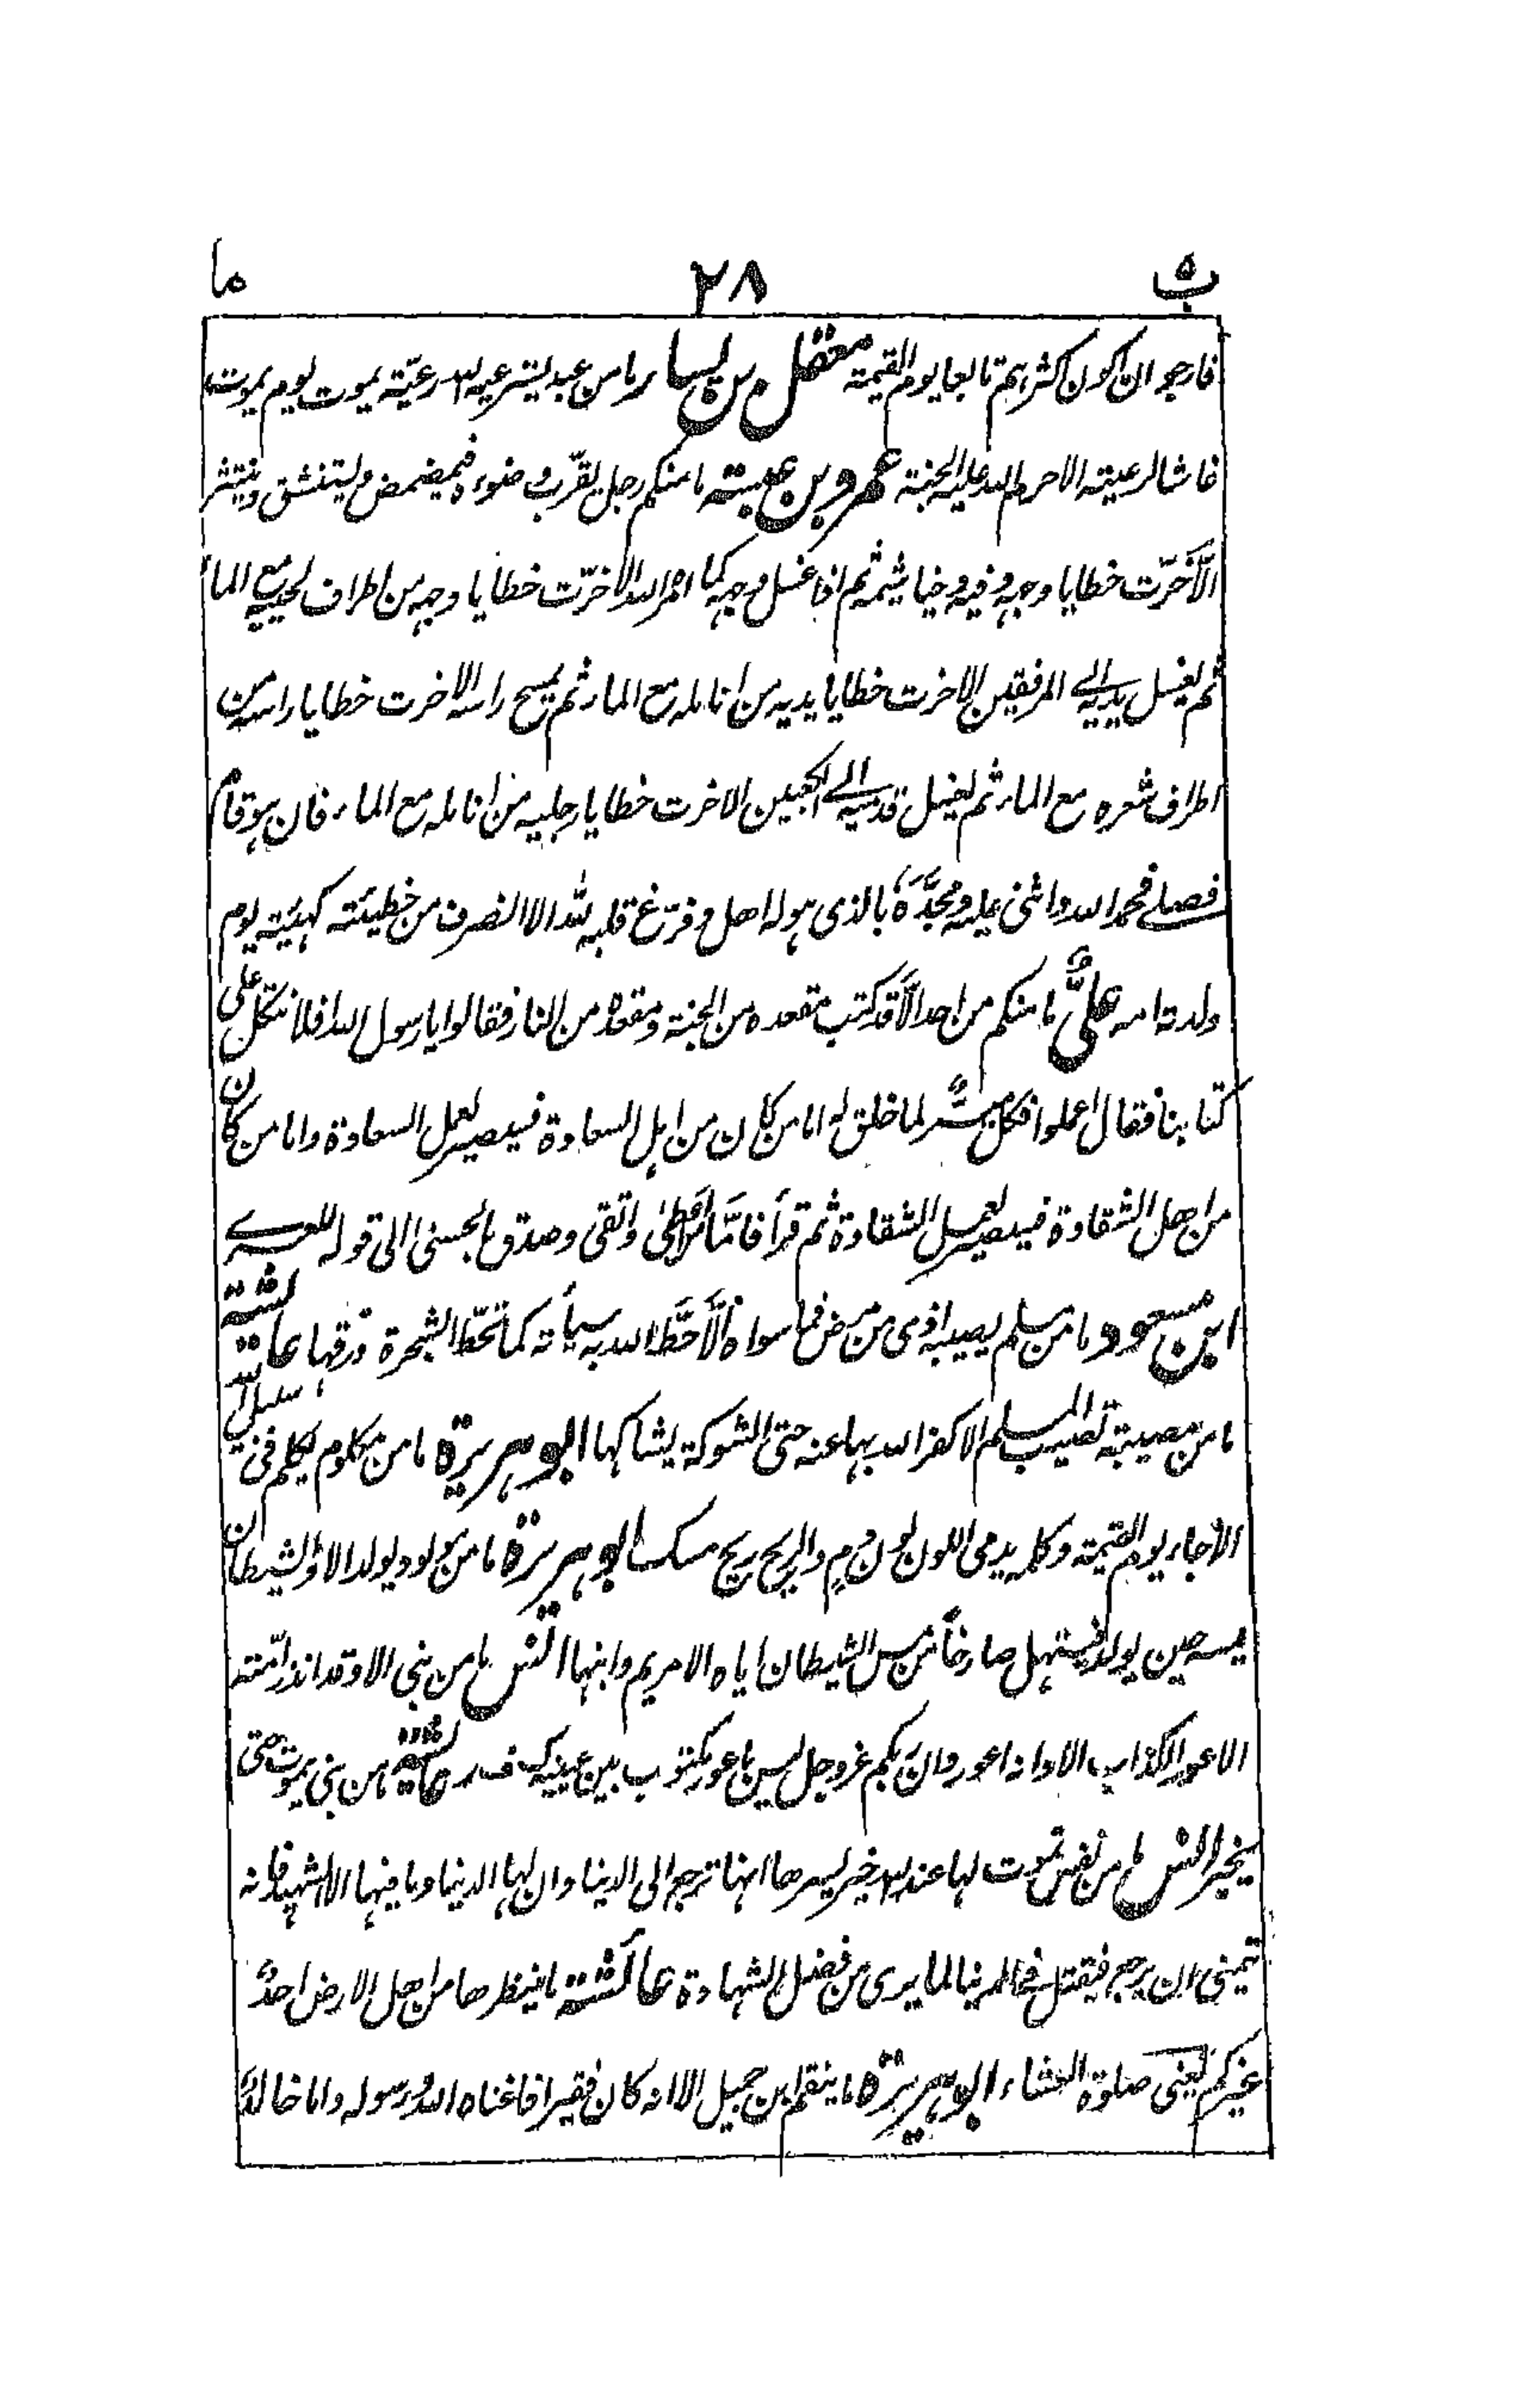 ب ٥ ٢٨ ما
فارجو ان اكون اكثرهم تابعا يوم القيمة معقل بن يسار ما من عبد يسترعيه الله رعيّة يموت يوم يموت
غاشا لرعيته الا حرم الله عليه الجنة عمرو بن عبسة ما منكم رجل يقرّب وضوءه فيمضمض وليتنشق وينتثر
الّا خرّت خطايا وجهه وفيه وخياشيمه ثم اذا غسل وجهه كما امر الله الا خرّت خطايا وجهه من اطراف لحيته مع الماء
ثم يغسل يديه الى المرفقين الا خرت خطايا يديه من انامله مع الماء ثم يمسح راسه الا خرت خطايا راسه من
اطراف شعره مع الماء ثم يغسل قدميه الى الكعبين الا خرت خطايا رجليه من انامله مع الماء فان هو قام
فصلى فحمد الله واثنى عليه ومجّده بالذى هو له اهل وفرّغ قلبه لله الا انصرف من خطيئته كهيئته يوم
ولدته امه علىٌّ ما منكم من احد الّا قد كتب مقعده من الجنة ومقعده من النار فقالوا يا رسول الله افلا نتكل على
كتابنا فقال اعملوا فكل ميسّر لما خلق له اما من كان من اهل السعادة فسيصير لعمل السعادة واما من كان
من اهل الشقاوة فسيصير لعمل الشقاوة ثم قرأ فامّا من اعطى واتقى وصدق بالحسنى الى قوله للعسرى
ابن مسعود ما من مسلم يصيبه اذى من مرض فما سواه الّا حطّ الله به سيأته كما تحطّ الشجرة ورقها عائشة
ما من مصيبة تصيب المسلم الا كفر الله بها عنه حتى الشوكة يشاكها ابو هريرة ما من مكلوم يكلم فى سبيل الله
الا جاء يوم القيمة وكلمه يدمى اللون لون دم والريح ريح مسك ابو هريرة ما من مولود يولد الا والشيطان
يمسه حين يولد فيستهل صارخاً من مس الشيطان اياه الا مريم وابنها انس ما من نبى الا وقد انذر امّته
الاعور الكذاب الا وانه اعور وان ربكم عز وجل ليس باعور مكتوب بين عينيه ك ف ر عائشة ما من نبى يموت حتى
يخير انس ما من نفس تموت لها عند الله خير يسرها انها ترجع الى الدنيا وان لها الدنيا وما فيها الا الشهيد فانه
يتمنى ان يرجع فيقتل فى الدنيا لما يرى من فضل الشهادة عائشة ما ينتظرها من اهل الارض احدٌ
غيركم يعنى صلوة العشاء ابو هريرة ما ينقم ابن جميل الا انه كان فقيرا فاغناه الله ورسوله واما خالدٌ